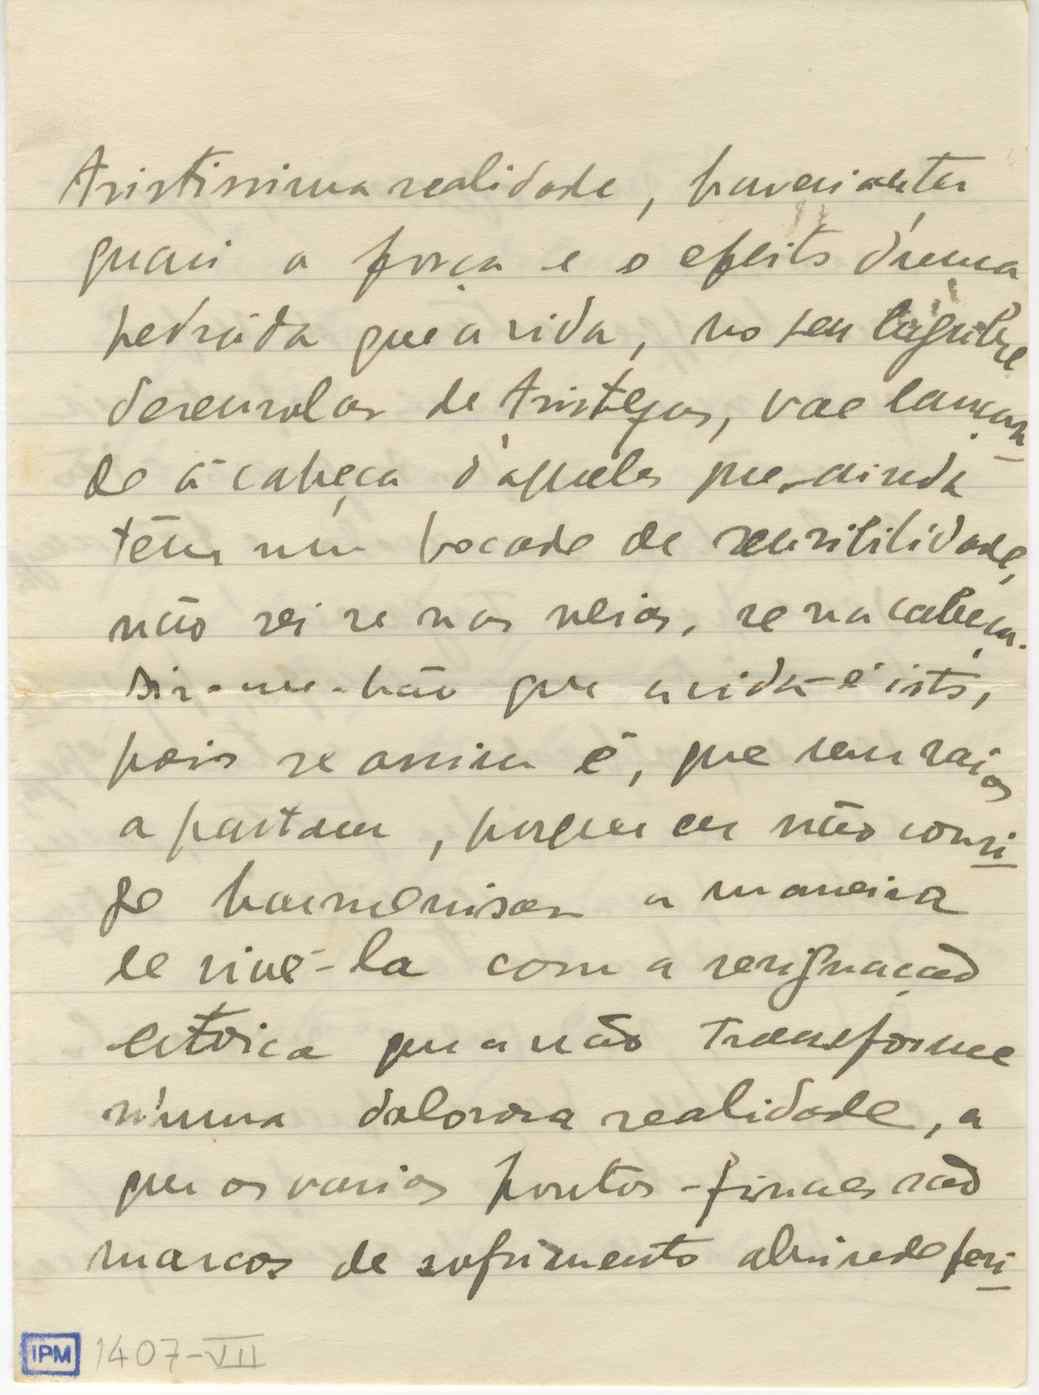 tristissima realidade,
quasi a força e o efeito d'uma
pedrada que a vida, no seu lúgubre
desenrolar de tristezas, vae lançan-
do á cabeça d'aqueles que ainda
têm um bocado de sensibilidade,
não sei se nas veias, se na cabeça.
Dir-me-hão que a vida é isto,
pois se assim é, que sem raios
a partam, porque eu não consi-
go harmonisar a maneira
de vivê-la com a resignação
estoica que a não transforme
n'uma dolorosa realidade, a
que os varios pontos-finaes são
marcos de sofrimento abrindo feri-
IPM 1407-VII